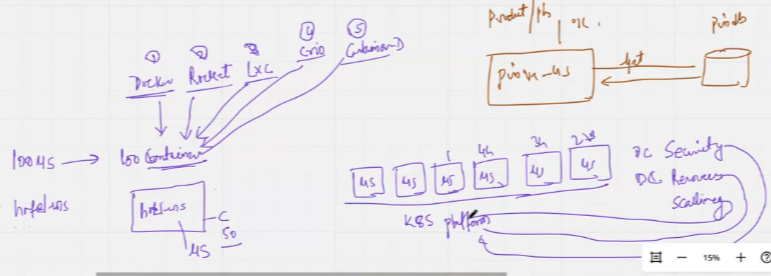 ① ② 3 ④ ⑤
Docker Rocket LXC Crio ContainerD
100 MS → 100 Container
hotelms
hotelms
C
50
MS
Product/ph
ok.
get
MS MS MS MS MS MS
1 4h 3h
K8S platform
DC Security
DC Resources
Scalling
15%